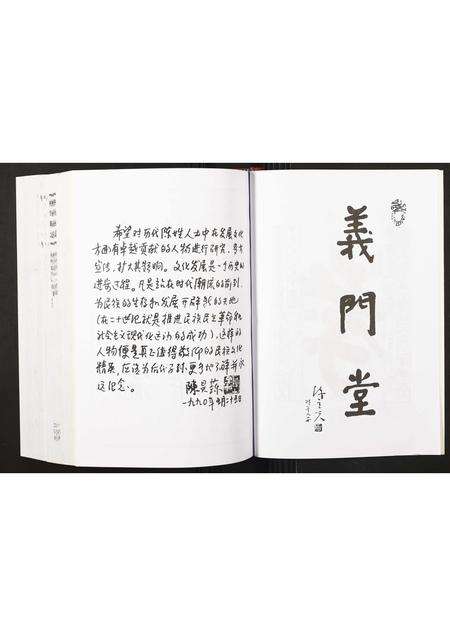 希望对历代陈姓人士中在发展文化
方面有卓越贡献的人物进行研究,多方
宣传,扩大其影响。文化发展是一个历史的
进步过程。凡是站在时代潮流的前列,
为民族的生存和发展开辟新的天地
(在二十世纪就是推进民族民主革命和
社会主义现代化运动的成功),这样的
人物便是真正值得敬仰的民族文化
精英,应该为后代子孙更多地了解并永
远纪念。
陈昊苏
一九九〇年
義門堂